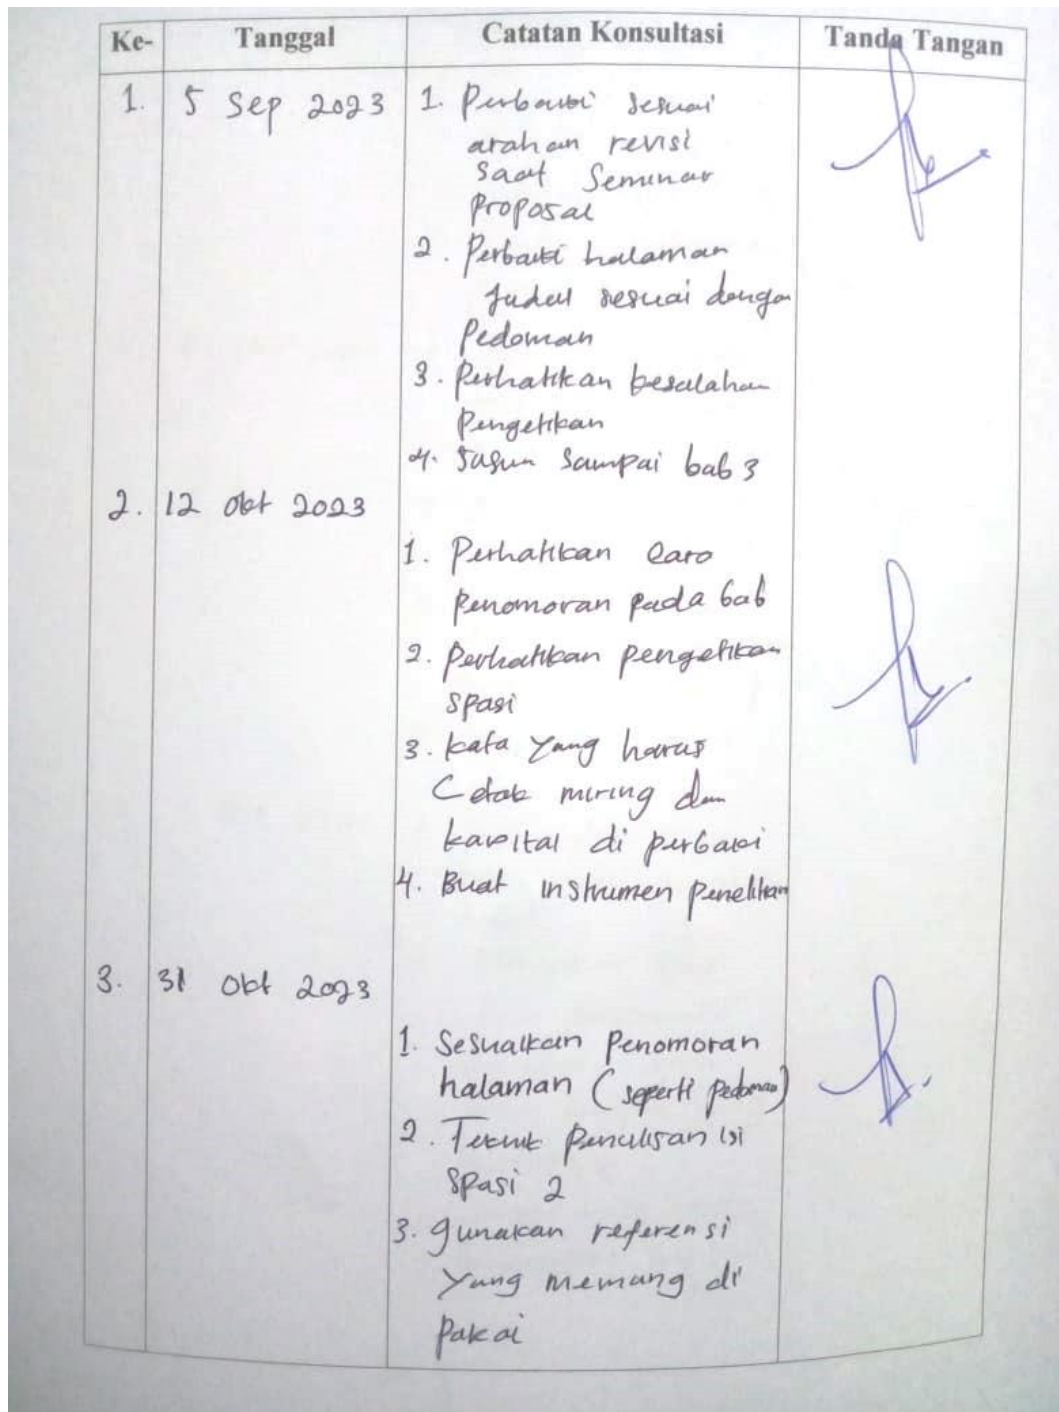 Ke- Tanggal Catatan Konsultasi Tanda Tangan
1. 5 Sep 2023 1. Perbaiki sesuai
arahan revisi
saat Seminar
Proposal
2. Perbaiki halaman
Judul sesuai dengan
Pedoman
3. Perhatikan kesalahan
Pengetikan
4. Susun Sampai bab 3
2. 12 Okt 2023
1. Perhatikan Cara
Penomoran pada bab
2. Perhatikan pengetikan
spasi
3. kata yang harus
Cetak miring dan
kapital di perbaiki
4. Buat instrumen penelitian
3. 31 Okt 2023
1. Sesuaikan Penomoran
halaman (seperti pedoman)
2. Teknik Penulisan isi
Spasi 2
3. gunakan referensi
yang memang di
Pakai